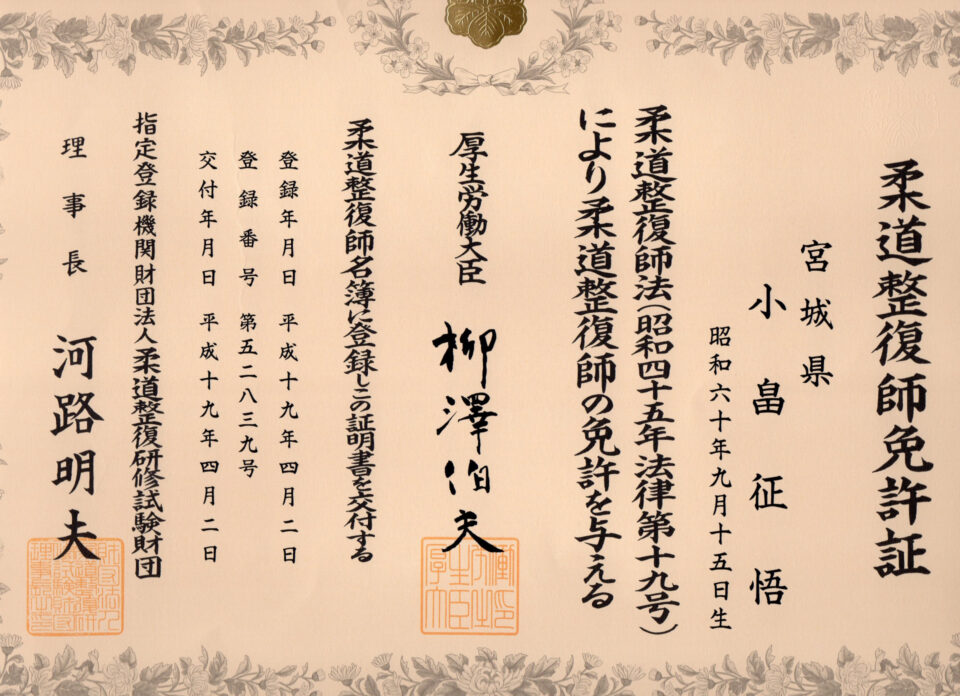 柔道整復師免許証
宮城県
小畠征悟
昭和六十年九月十五日生
柔道整復師法(昭和四十五年法律第十九号)
により柔道整復師の免許を与える
厚生労働大臣 柳澤伯夫
柔道整復師名簿に登録しこの証明書を交付する
登録年月日 平成十九年四月二日
登録番号 第五二八三九号
交付年月日 平成十九年四月二日
指定登録機関財団法人柔道整復研修試験財団
理事長 河路明夫